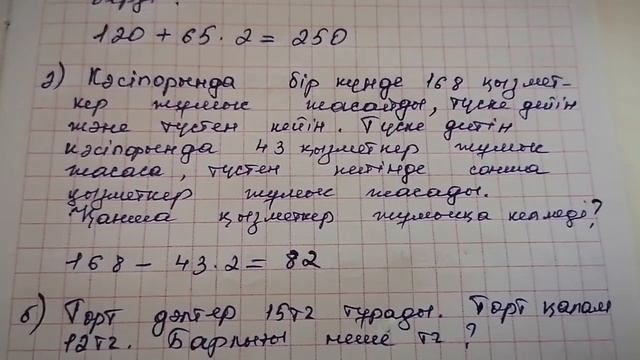 120 + 65 · 2 = 250
2) Кәсіпорында бір күнде 168 қызмет-
кер жұмыс жасайды, түске дейін
және түстен кейін. Түске дейін
кәсіпорында 43 қызметкер жұмыс
жасаса, түстен кейінде сонша
қызметкер жұмыс жасады.
Қанша қызметкер жұмысқа келмеді?
168 − 43 · 2 = 82
б) Төрт дәптер 15тг тұрады. Төрт қалам
12тг. Барлығы неше тг?